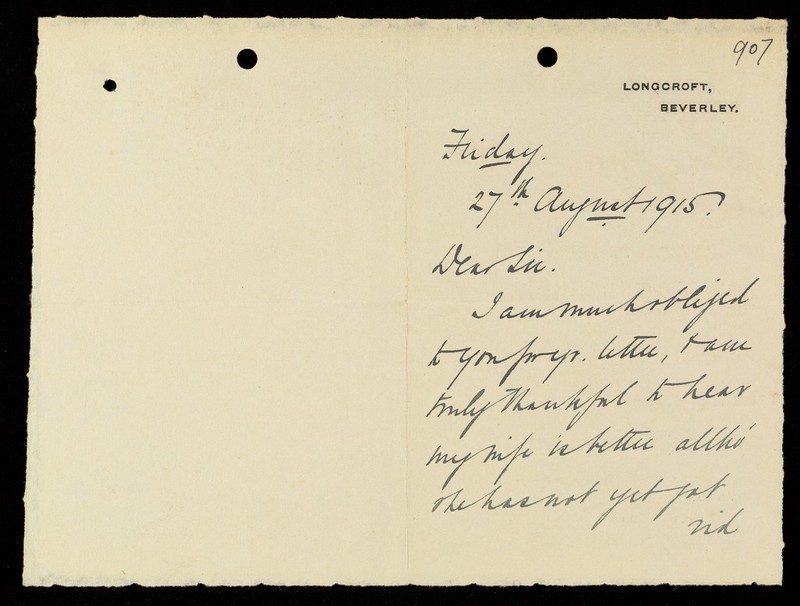 907
LONGCROFT,
BEVERLEY.
Friday.
27th August 1915.
Dear Sir.
I am much obliged
to you for yr. letter, & am
truly thankful to hear
my wife is better altho'
she has not yet got
rid